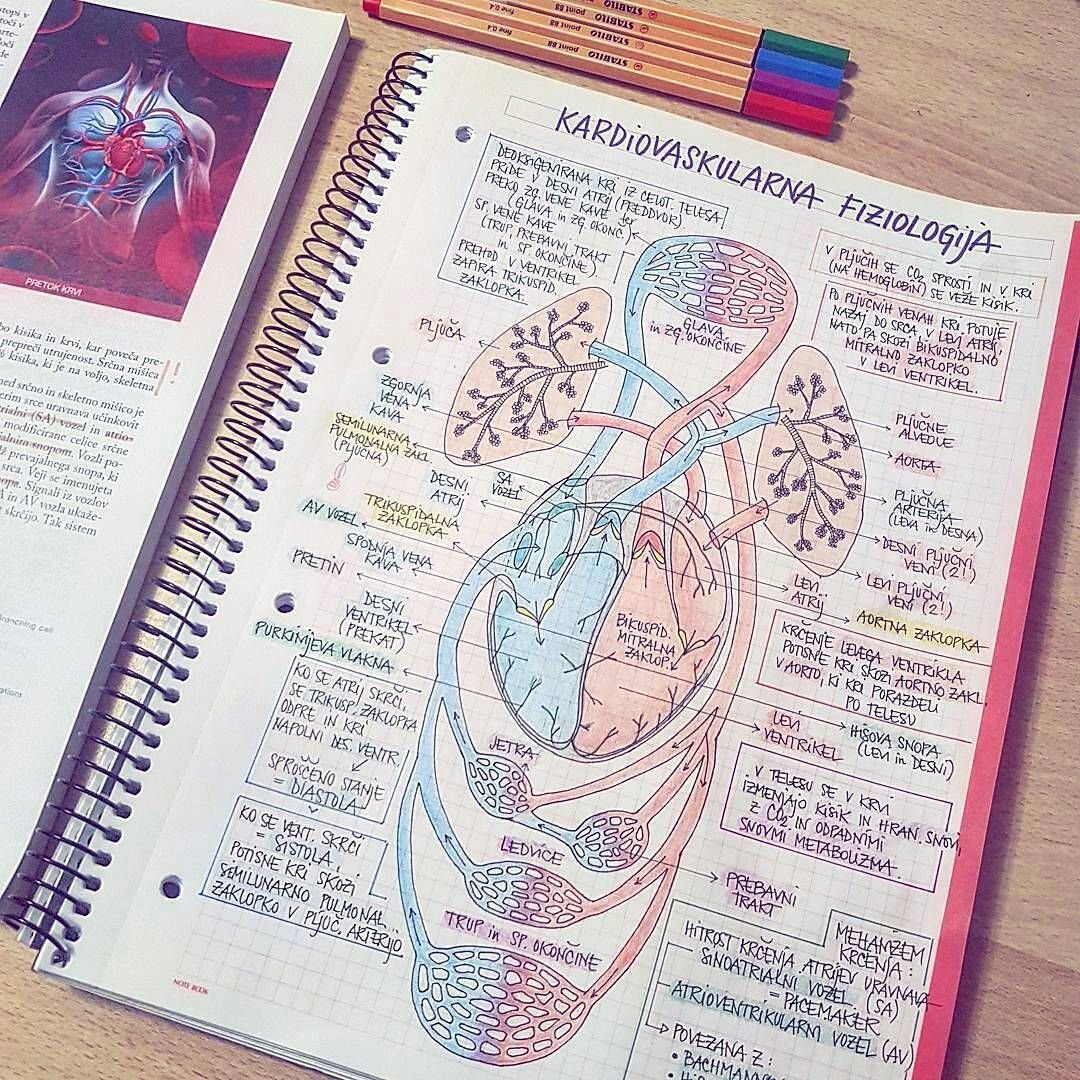 PRETOK KRVI
bo kisika in krvi, kar poveča pre-
prepreči utrujenost. Srčna mišica
% kisika, ki je na voljo, skeletna
med srčno in skeletno mišico je
erim srce uravnava učinkovit
trialni (SA) vozel in atrio-
modificirane celice srčne
snopom. Vozli po-
prevajalnega snopa, ki
srca. Veji se imenujeta
Signali iz vozlov
A in AV vozla ukaže-
skrčijo. Tak sistem
STABILO
point 88
fine 0.4
STABILO
point 88
fine 0.4
KARDIOVASKULARNA FIZIOLOGIJA
DEOKSIGENIRANA KRI IZ CELOT. TELESA
PRIDE V DESNI ATRIJ (PREDDVOR)
PREKO ZG. VENE KAVE ter
(GLAVA in ZG. OKONČ.)
SP. VENE KAVE
(TRUP, PREBAVNI TRAKT
in SP. OKONČINE)
PREHOD V VENTRIKEL
ZAPIRA TRIKUSPID.
ZAKLOPKA.
V PLJUČIH SE CO2 SPROSTI IN V KRI
(NA HEMOGLOBIN) SE VEŽE KISIK.
PO PLJUČNIH VENAH KRI POTUJE
NAZAJ DO SRCA, V LEVI ATRIJ,
NATO PA SKOZI BIKUSPIDALNO
MITRALNO ZAKLOPKO
V LEVI VENTRIKEL.
GLAVA
in ZG. OKONČINE
PLJUČA
ZGORNJA
VENA
KAVA
SEMILUNARNA
PULMONALNA ZAKL.
(PLJUČNA)
DESNI
ATRIJ
SA
VOZEL
AV VOZEL
TRIKUSPIDALNA
ZAKLOPKA
SPODNJA VENA
KAVA
PRETIN
DESNI
VENTRIKEL
(PREKAT)
PURKINJEVA VLAKNA
PLJUČNE
ALVEOLE
AORTA
PLJUČNA
ARTERIJA
(LEVA in DESNA)
DESNI PLJUČNI
VENI (2!)
LEVI PLJUČNI
VENI (2!)
LEVI
ATRIJ
AORTNA ZAKLOPKA
BIKUSPID.
MITRALNA
ZAKLOP.
KRČENJE LEVEGA VENTRIKLA
POTISNE KRI SKOZI AORTNO ZAKL.
V AORTO, KI KRI PORAZDELI
PO TELESU
LEVI
VENTRIKEL
HISOVA SNOPA
(LEVI in DESNI)
KO SE ATRIJ SKRČI,
SE TRIKUSP. ZAKLOPKA
ODPRE IN KRI
NAPOLNI DES. VENTR.
SPROŠČENO STANJE
= DIASTOLA
KO SE VENT. SKRČI
= SISTOLA,
POTISNE KRI SKOZI
SEMILUNARNO PULMONAL.
ZAKLOPKO V PLJUČ. ARTERIJO
JETRA
LEDVICE
TRUP in SP. OKONČINE
V TELESU SE V KRVI
IZMENJAJO KISIK IN HRAN. SNOVI,
Z CO2 IN ODPADNIMI
SNOVMI METABOLIZMA.
PREBAVNI
TRAKT
MEHANIZEM
KRČENJA:
HITROST KRČENJA ATRIJEV URAVNAVA
SINOATRIALNI VOZEL (SA)
= PACEMAKER
ATRIOVENTRIKULARNI VOZEL (AV)
POVEZANA Z:
NOTE BOOK